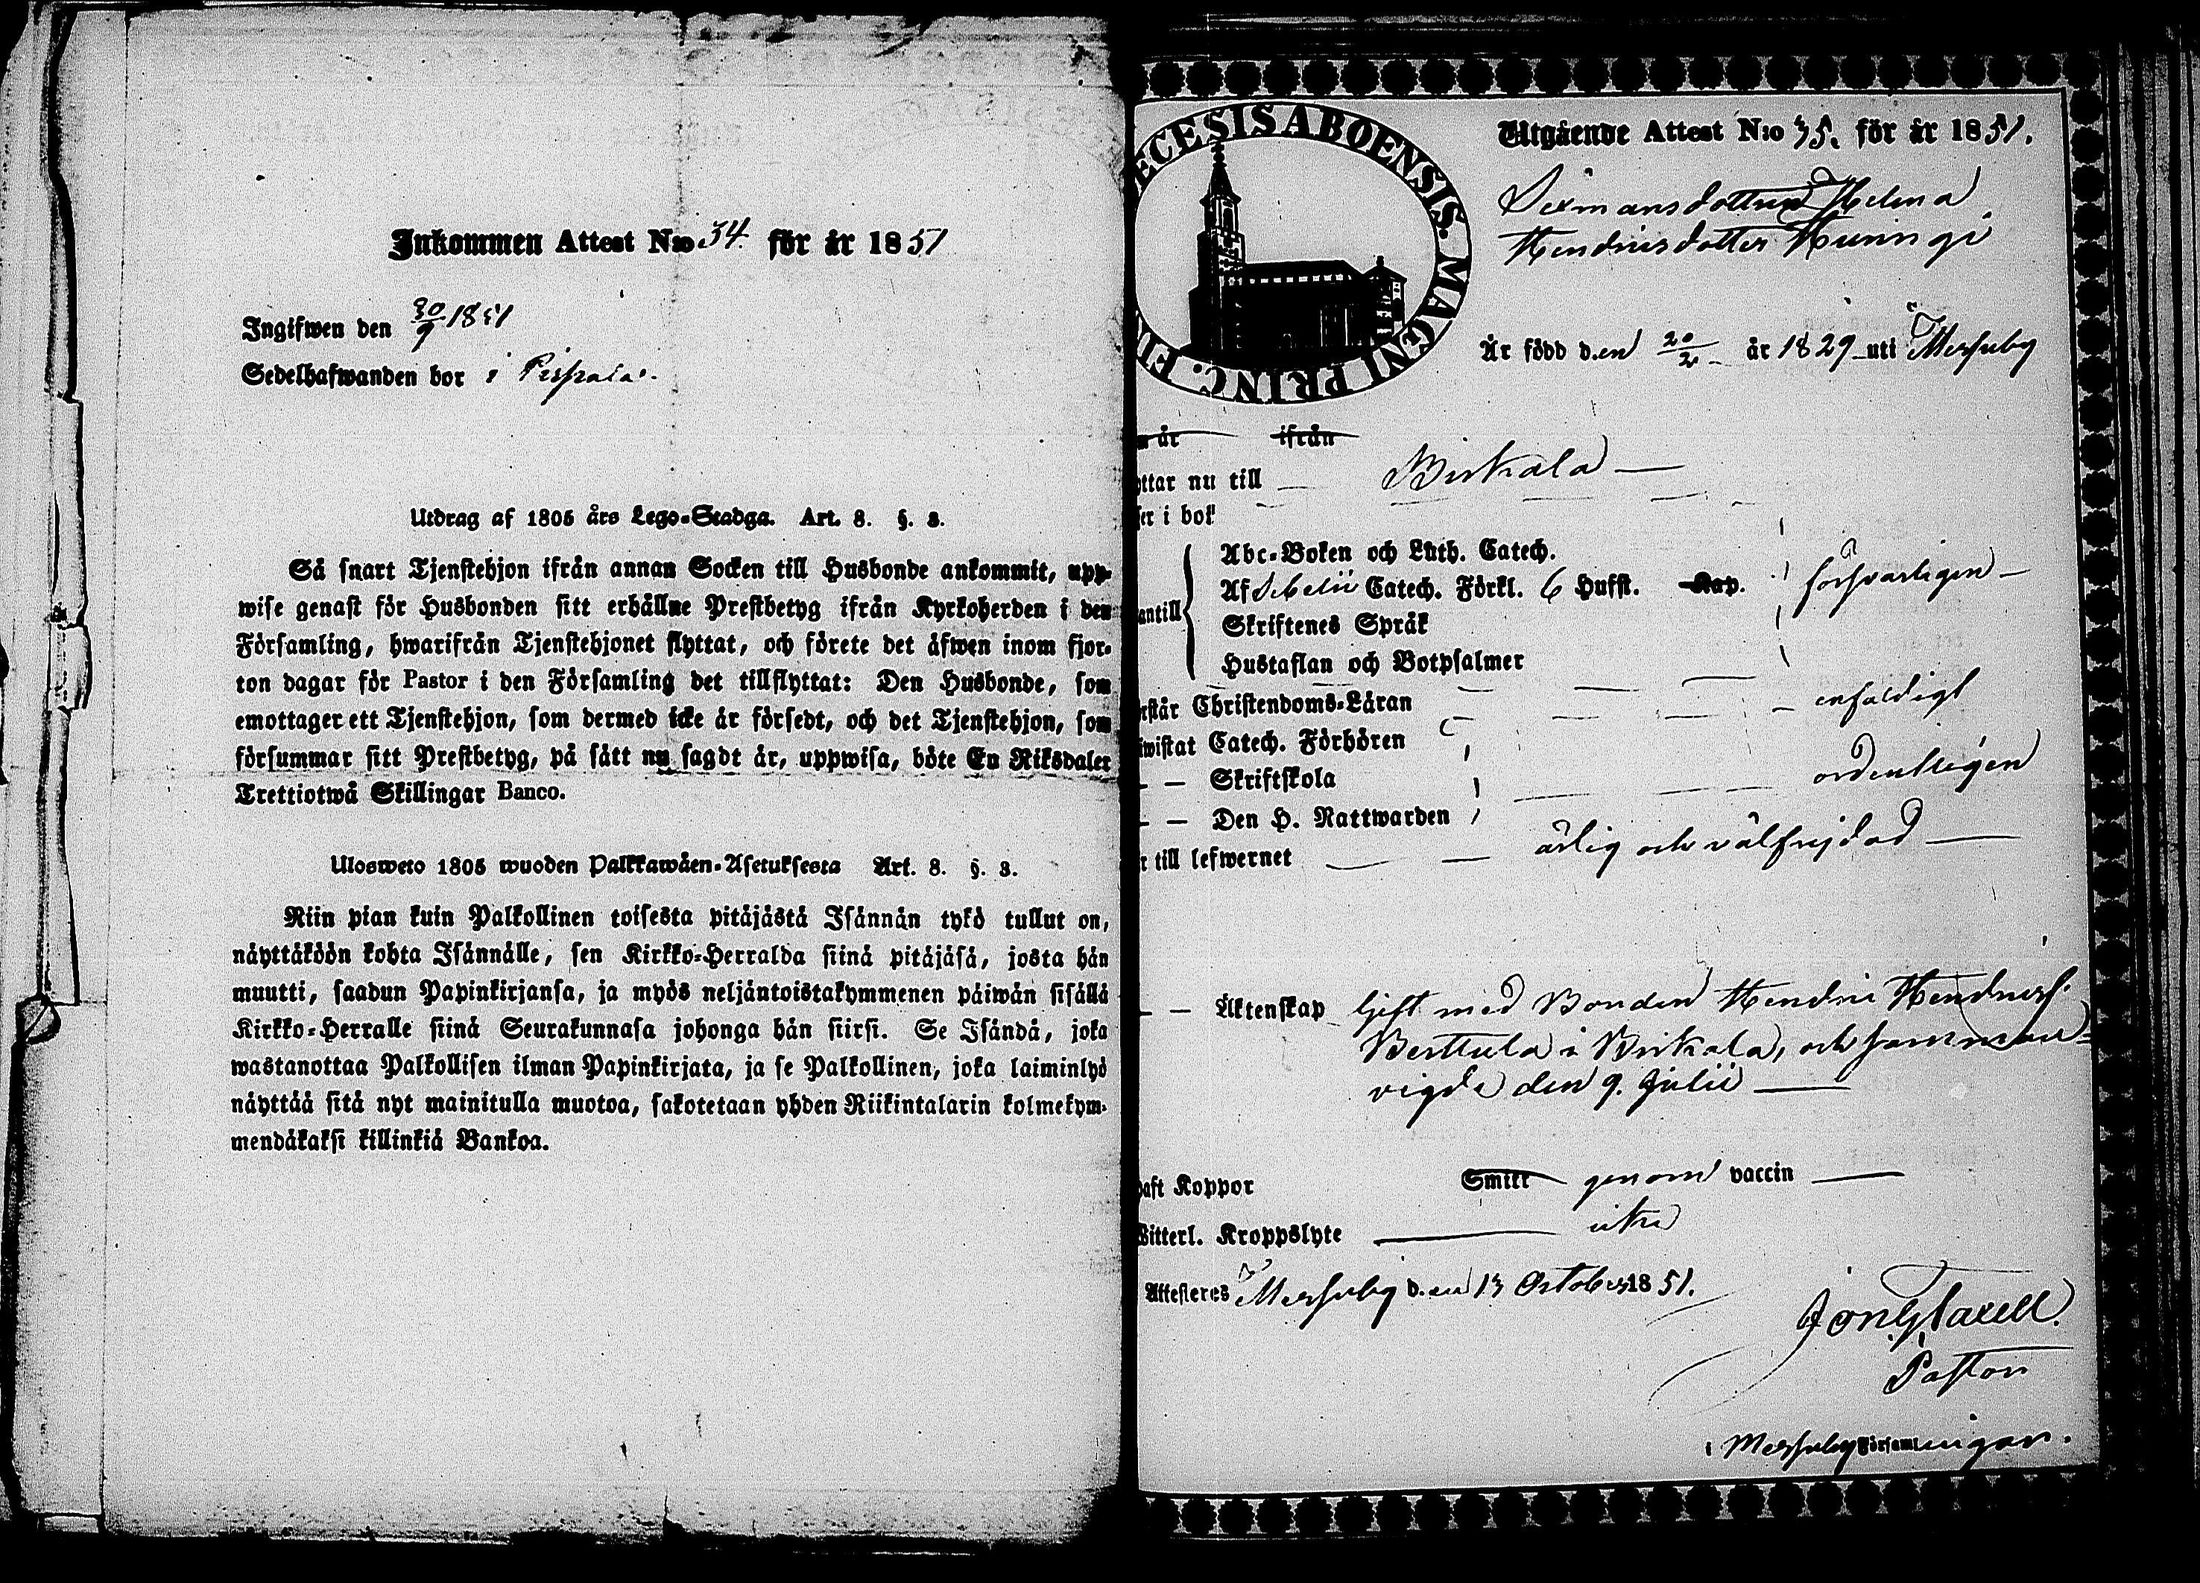 Inkommen Attest N:o 34 för år 1851
Ingifwen den 30/9 1851
Sedelhafwanden bor i Pispala.
Utdrag af 1805 års Lego-Stadga. Art. 8. §. 3.
Så snart Tjenstehjon ifrån annan Socken till Husbonde ankommit, upp-
wise genast för Husbonden sitt erhållne Prestbetyg ifrån Kyrkoherden i den
Församling, hwarifrån Tjenstehjonet flyttat, och förete det äfwen inom fjor-
ton dagar för Pastor i den Församling det tillflyttat: Den Husbonde, som
emottager ett Tjenstehjon, som dermed icke är försedt, och det Tjenstehjon, som
försummar sitt Prestbetyg, på sätt nu sagdt är, uppwisa, böte En Riksdaler
Trettiotwå Skillingar Banco.
Ulosweto 1805 wuoden Palkkawäen-Asetuksesta Art. 8. §. 3.
Niin pian kuin Palkollinen toisesta pitäjästä Isännän tykö tullut on,
näyttäköön kohta Isännälle, sen Kirkko-Herralda siinä pitäjäsä, josta hän
muutti, saadun Papinkirjansa, ja myös neljäntoistakymmenen päiwän sisällä
Kirkko-Herralle siinä Seurakunnasa johonga hän siirsi. Se Isändä, joka
wastanottaa Palkollisen ilman Papinkirjata, ja se Palkollinen, joka laiminlyö
näyttää sitä nyt mainitulla muotoa, sakotetaan yhden Riikintalarin kolmekym-
mendäkaksi killinkiä Bankoa.
ECESIS ABOENSIS. MAGNI PRINC. FI
Utgående Attest N:o 35. för år 1851.
Helena
Hendricsdotter
År född den 20/2 år 1829 uti Messuby
år ifrån
ttar nu till Birkala
ser i bok
antill
Abc-Boken och Luth. Catech.
Af Sebelii Catech. Förkl. 6 Hufst. Kap. försvarligen
Skriftenes Språk
Hustaflan och Botpsalmer
rstår Christendoms-Läran enfaldigt
wistat Catech. Förhören
Skriftskola ordentligen
Den H. Nattwarden
r till lefwernet ärlig och välfrejdad
Äktenskap Gift med Bonden Hendric Hendricss.
Berttula i Birkala, och samman-
vigde den 9. Julii
haft Koppor Smitt genom vaccin
Witterl. Kroppslyte icke
Attesteres Messuby den 13 October 1851.
Pastor
i Messuby Församlingar.